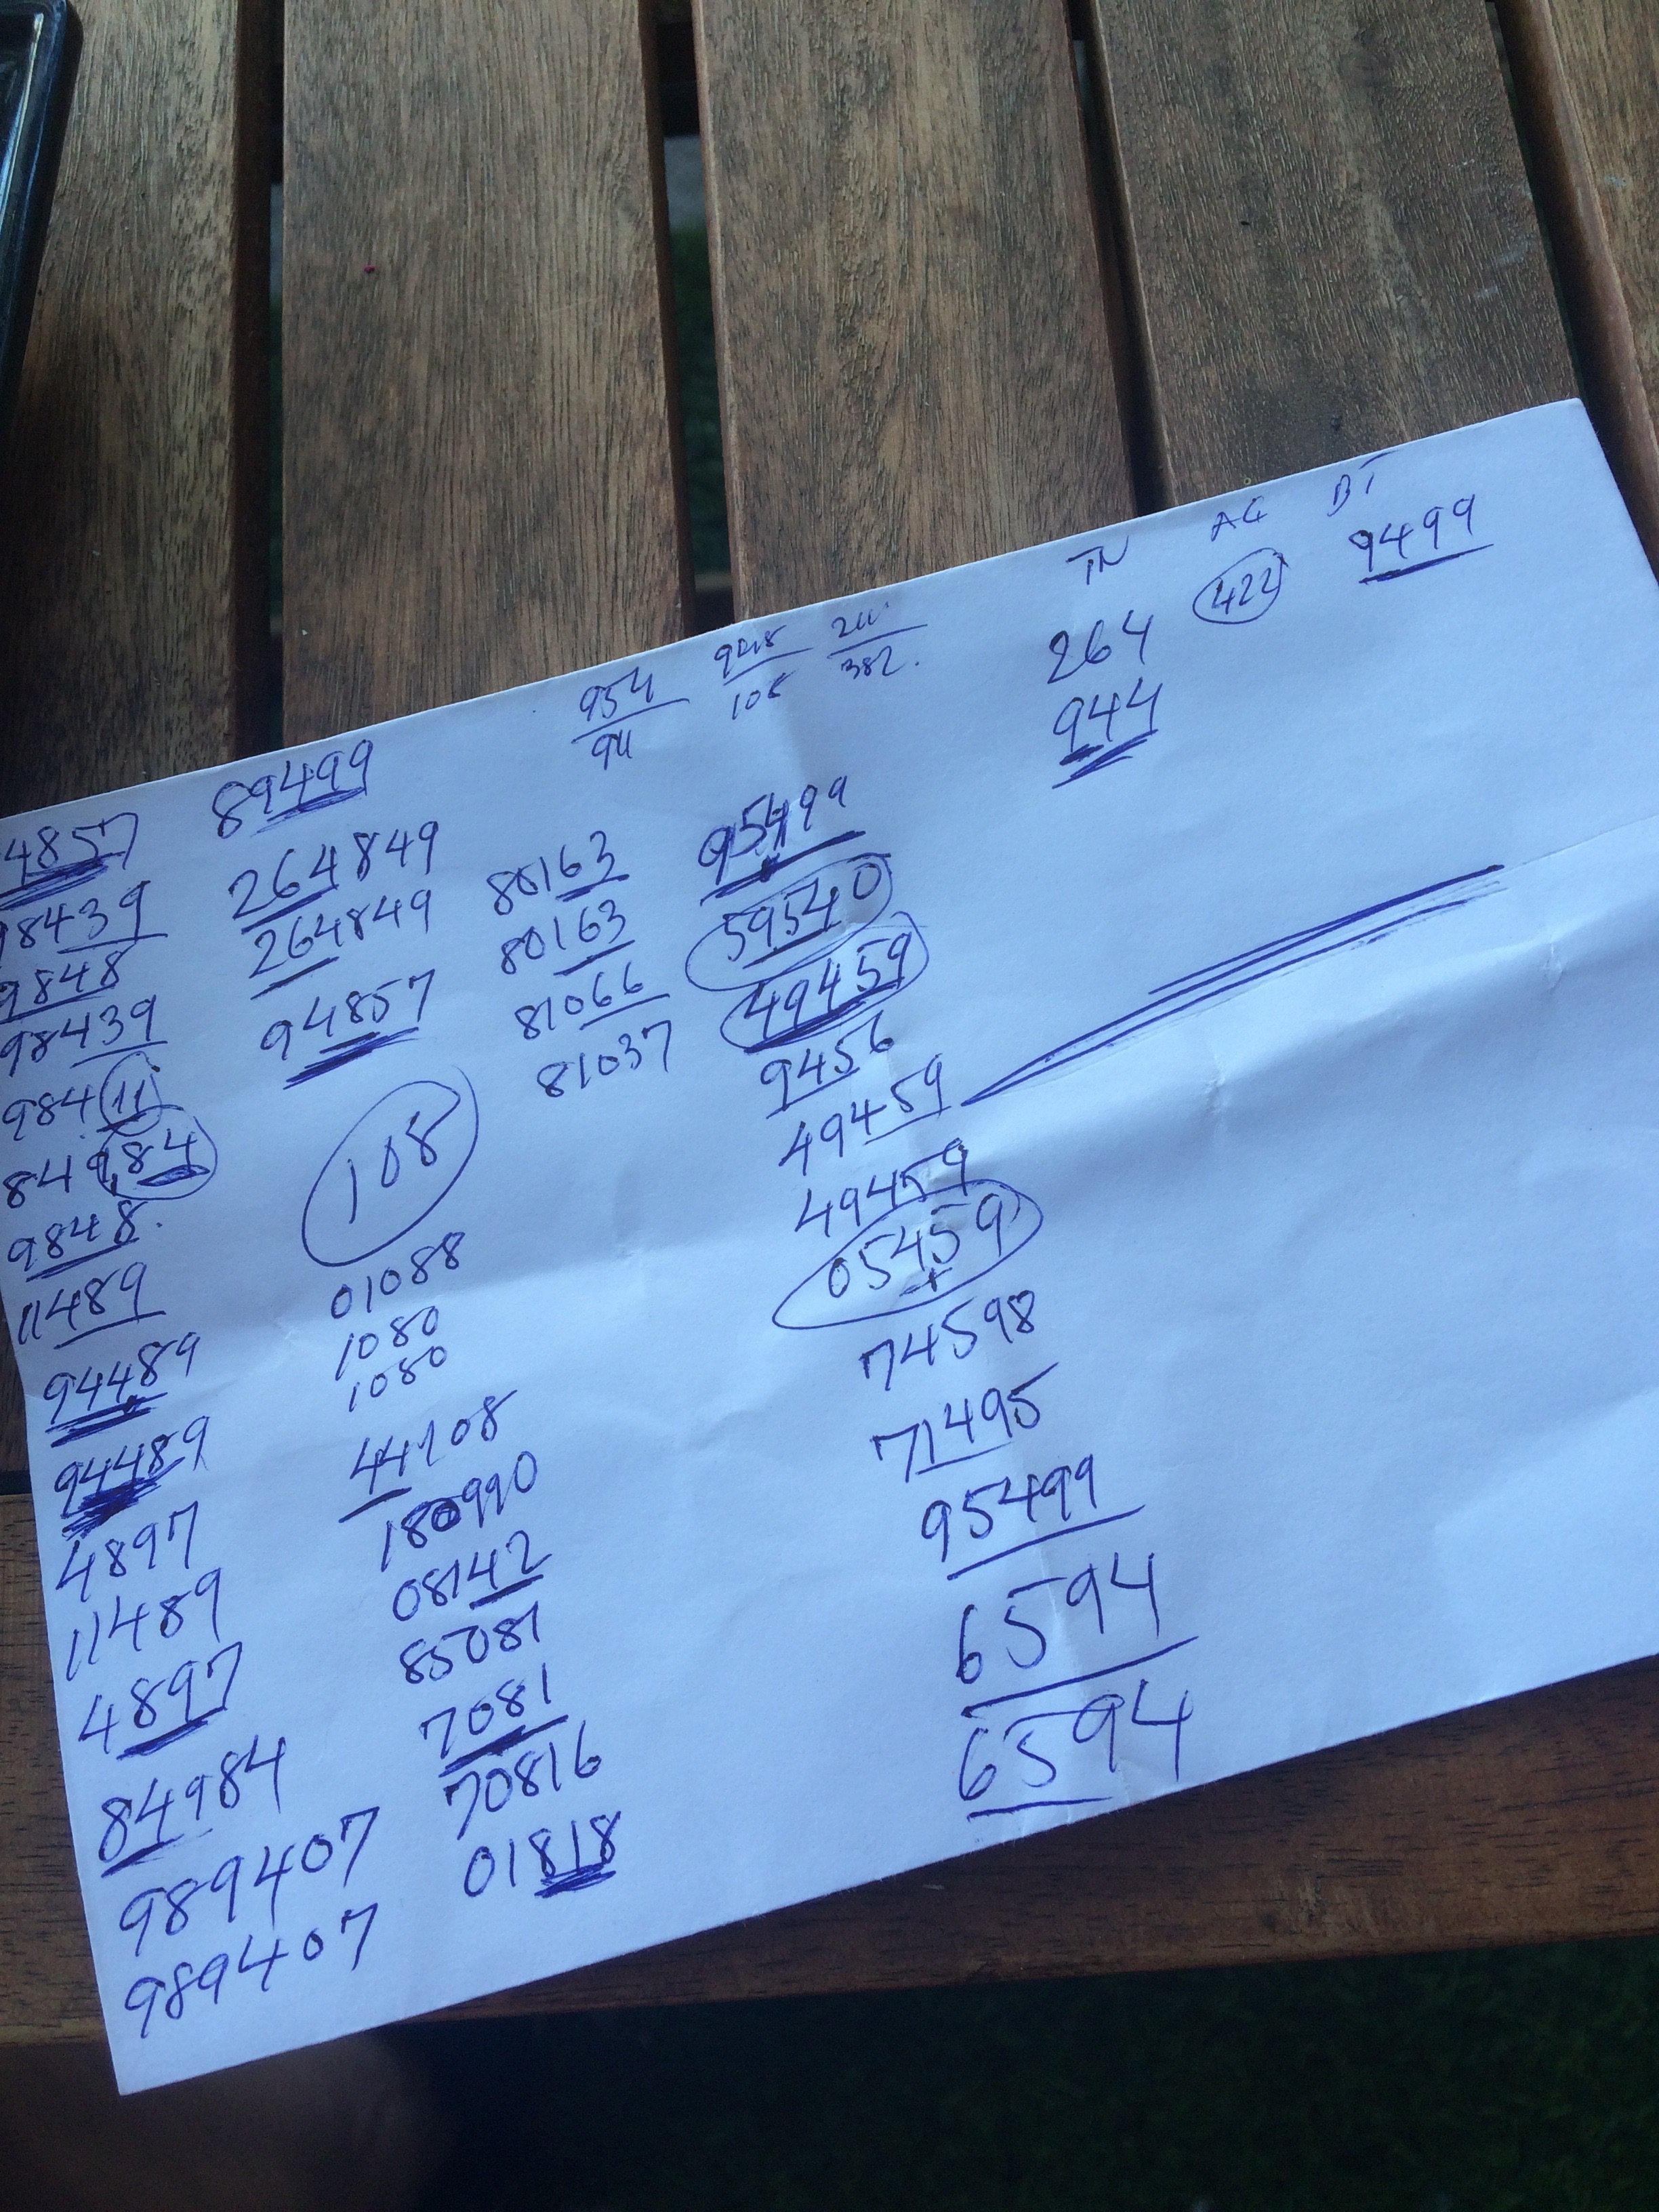 TN AG BT
264 422 9499
944
954
94
948
108
382.
89499
264849
264849
94857
4857
98439
9848
98439
98411
84984
9848.
11489
94489
94489
4897
11489
4897
84984
989407
989407
80163
80163
81066
81037
108
01088
1080
1080
44108
180990
08142
85081
7081
70816
01818
95499
59540
49459
9456
49459
49459
05459
74598
71495
95499
6594
6594